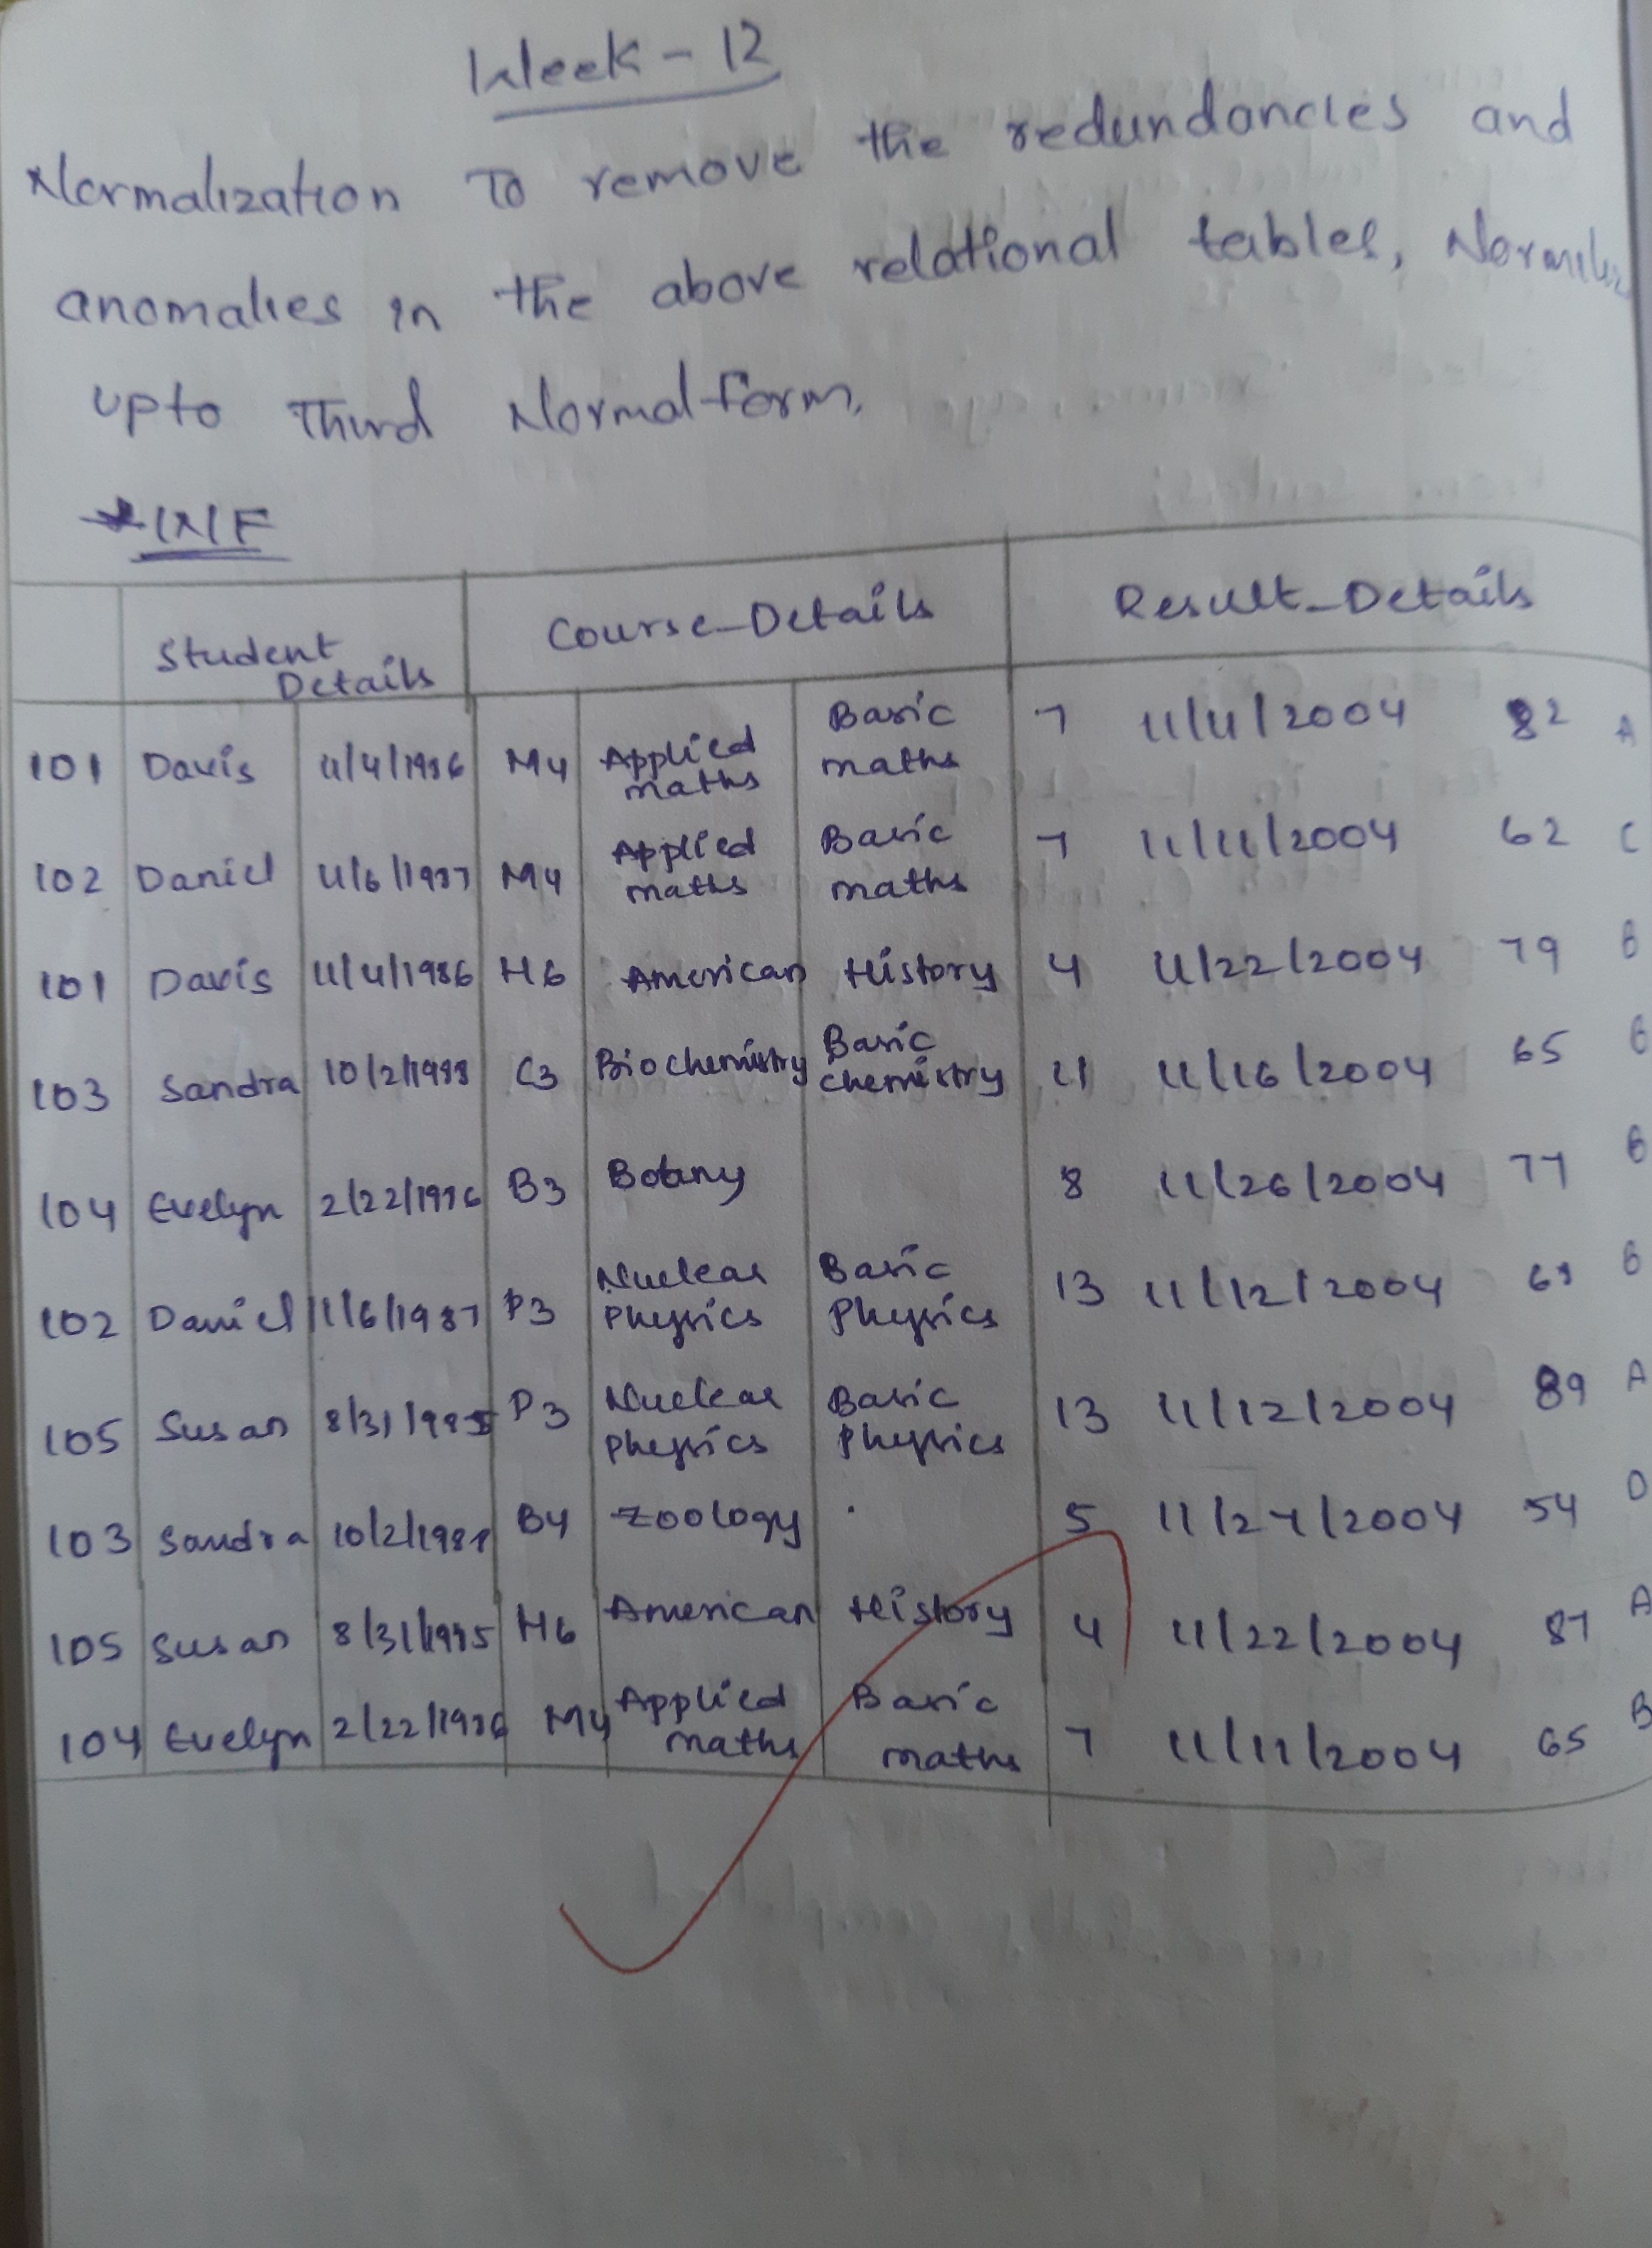 Week - 12
Normalization To remove the redundancies and
anomalies in the above relational tables,
upto Third Normal form.
* 1NF
Student Details Course_Details Result_Details
101 Davis 11/4/1986 M4 Applied maths Basic maths 7 11/11/2004 82 A
102 Daniel 11/6/1987 M4 Applied maths Basic maths 7 11/11/2004 62 C
101 Davis 11/4/1986 H6 American History 4 11/22/2004 79 B
103 Sandra 10/2/1988 C3 Biochemistry Basic chemistry 11 11/16/2004 65 B
104 Evelyn 2/22/1986 B3 Botany 8 11/26/2004 77 B
102 Daniel 11/6/1987 P3 Nuclear Physics Basic Physics 13 11/12/2004 B
105 Susan 8/31/1985 P3 Nuclear Physics Basic Physics 13 11/12/2004 89 A
103 Sandra 10/2/1988 B4 Zoology 5 11/27/2004 54 D
105 Susan H6 American History 4 11/22/2004 87 A
104 Evelyn 2/22/1986 M4 Applied maths Basic maths 7 11/11/2004 65 B